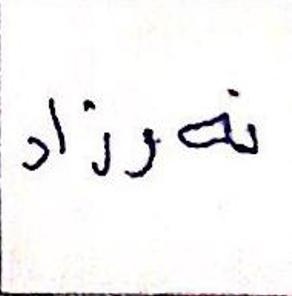 نەورزاد